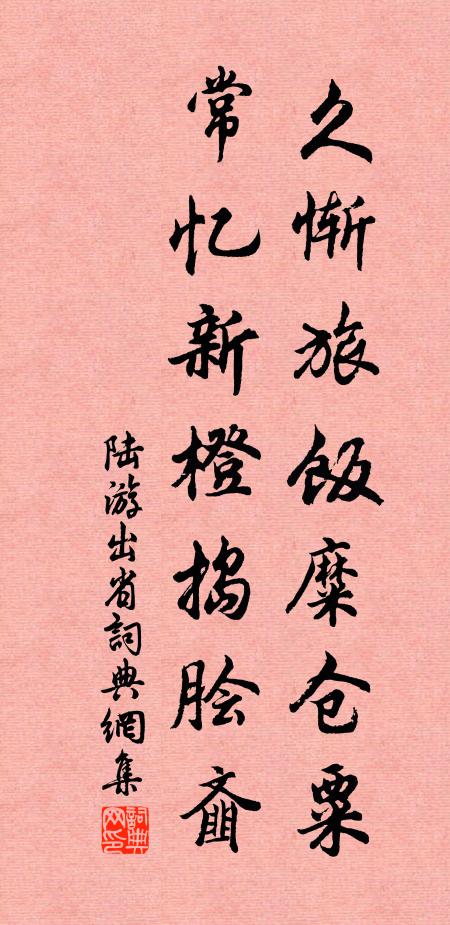 久惭旅饭糜仓粟
常忆新橙捣脍齑
陆游出省詞典網集
詞典网印